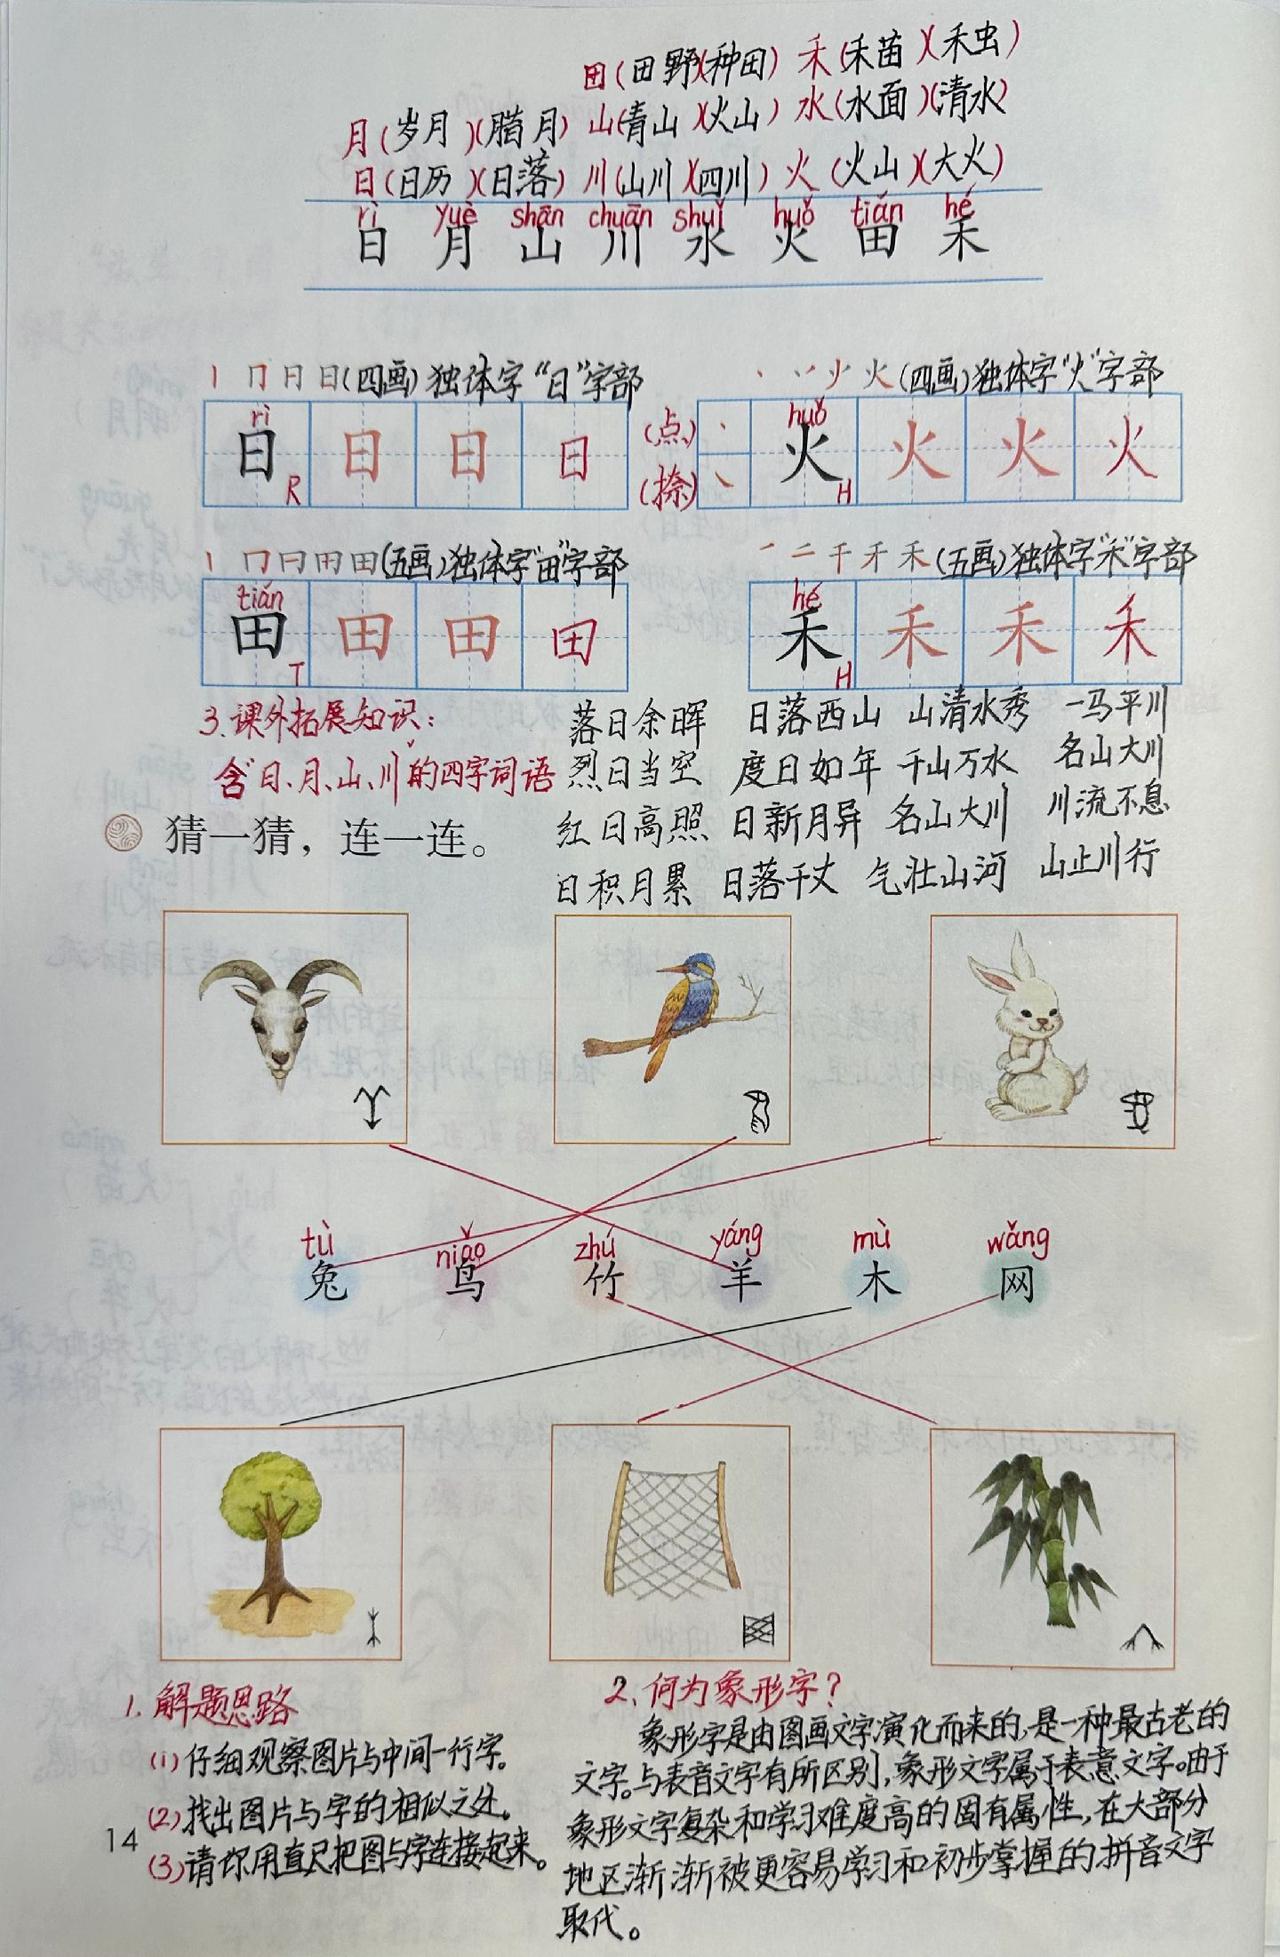 田(田野)(种田) 禾(禾苗)(禾虫)
月(岁月)(腊月) 山(青山)(火山) 水(水面)(清水)
日(日历)(日落) 川(山川)(四川) 火(火山)(大火)
rì yuè shān chuān shuǐ huǒ tián hé
日 月 山 川 水 火 田 禾
丨 冂 日 日(四画)独体字“日”字部
丶 丷 少 火(四画)独体字“火”字部
rì
日 日 日 日
R
(点) 丶
(捺) ㇏
huǒ
火 火 火 火
H
丨 冂 曰 田 田(五画)独体字“田”字部
一 二 千 禾 禾(五画)独体字“禾”字部
tián
田 田 田 田
T
hé
禾 禾 禾 禾
H
3.课外拓展知识:
含日、月、山、川的四字词语
落日余晖 日落西山 山清水秀 一马平川
烈日当空 度日如年 千山万水 名山大川
红日高照 日新月异 名山大川 川流不息
日积月累 日落千丈 气壮山河 山止川行
猜一猜，连一连。
tù niǎo zhú yáng mù wǎng
兔 鸟 竹 羊 木 网
1.解题思路
(1)仔细观察图片与中间一行字。
(2)找出图片与字的相似之处。
(3)请你用直尺把图与字连接起来。
14
2.何为象形字?
象形字是由图画文字演化而来的,是一种最古老的
文字。与表音文字有所区别,象形文字属于表意文字。由于
象形文字复杂和学习难度高的固有属性,在大部分
地区渐渐被更容易学习和初步掌握的拼音文字
取代。